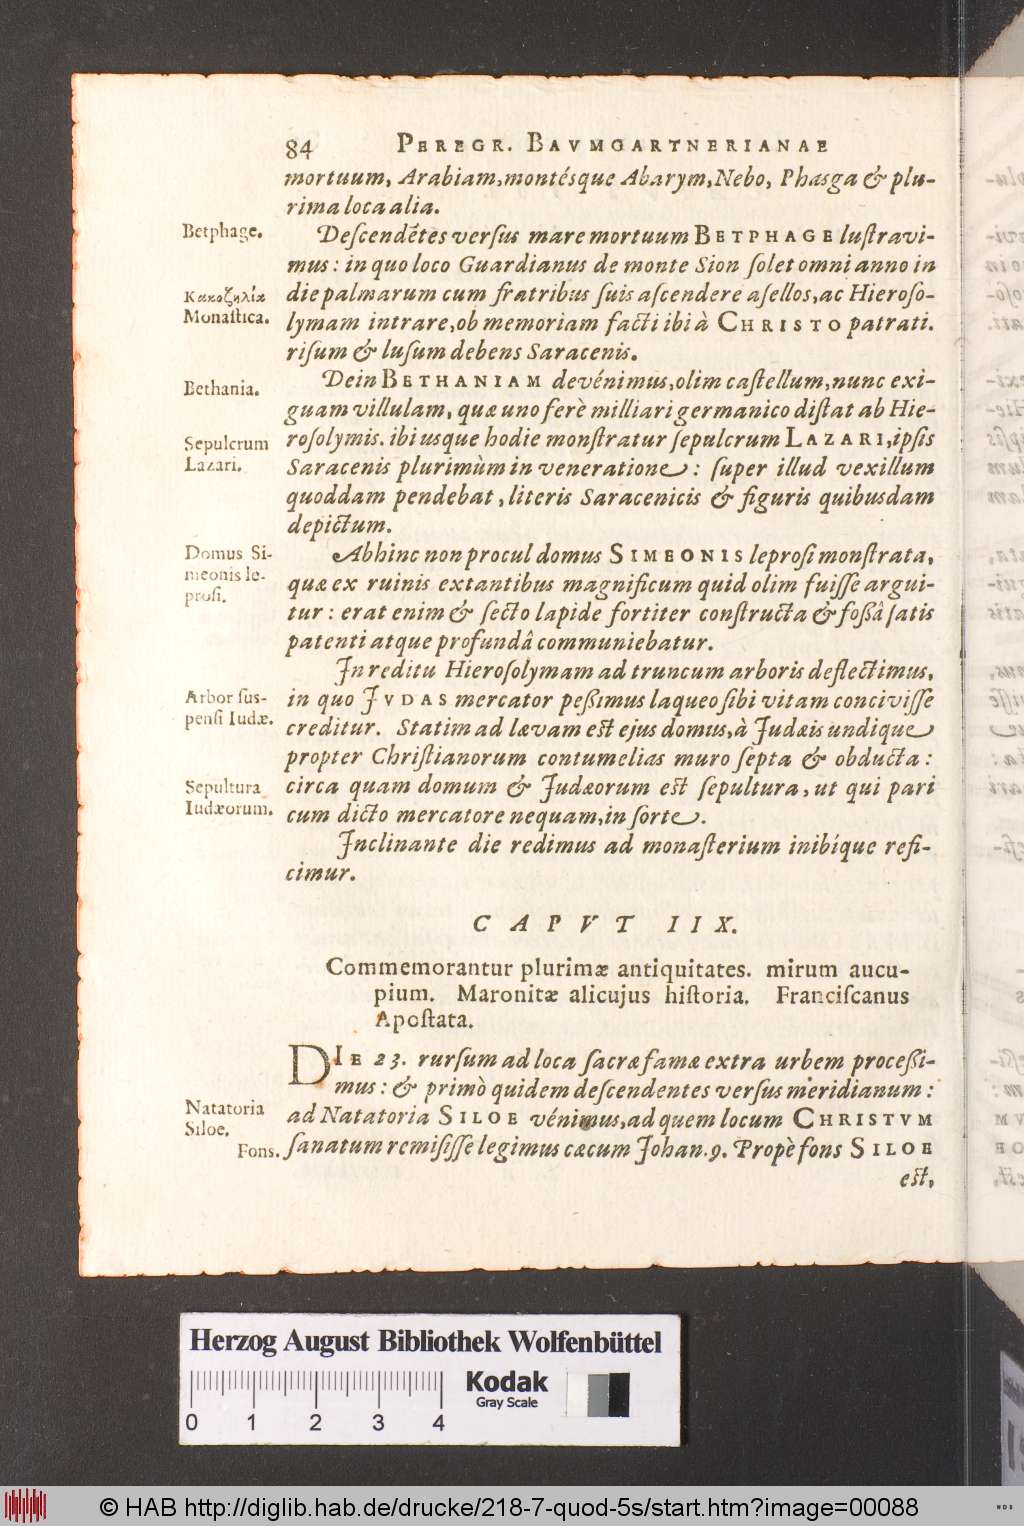 84 PEREGR. BAVMGARTNERIANAE
mortuum, Arabiam, montésque Abarym, Nebo, Phasga & plu-
rima loca alia.
Betphage.
Deſcendẽtes verſus mare mortuum BETPHAGE luſtravi-
mus: in quo loco Guardianus de monte Sion ſolet omni anno in
Κακοζηλία
Monaſtica.
die palmarum cum fratribus ſuis aſcendere aſellos, ac Hieroſo-
lymam intrare, ob memoriam facti ibi à CHRISTO patrati.
riſum & luſum debens Saracenis.
Bethania.
Dein BETHANIAM devénimus, olim caſtellum, nunc exi-
guam villulam, quæ uno ferè milliari germanico diſtat ab Hie-
Sepulcrum
Lazari.
roſolymis. ibi usque hodie monſtratur ſepulcrum LAZARI, ipſis
Saracenis plurimùm in veneratione: ſuper illud vexillum
quoddam pendebat, literis Saracenicis & figuris quibusdam
depictum.
Domus Si-
meonis le-
proſi.
Abhinc non procul domus SIMEONIS leproſi monſtrata,
quæ ex ruinis extantibus magnificum quid olim fuiſſe argui-
tur: erat enim & ſecto lapide fortiter conſtructa & foßâ ſatis
patenti atque profundâ communiebatur.
In reditu Hieroſolymam ad truncum arboris deflectimus,
Arbor ſus-
penſi Iudæ.
in quo JVDAS mercator peßimus laqueo ſibi vitam conciviſſe
creditur. Statim ad lævam eſt ejus domus, à Judæis undique
propter Chriſtianorum contumelias muro ſepta & obducta:
Sepultura
Iudæorum.
circa quam domum & Judæorum eſt ſepultura, ut qui pari
cum dicto mercatore nequam, in ſorte.
Inclinante die redimus ad monaſterium inibíque refi-
cimur.
CAPVT IIX.
Commemorantur plurimæ antiquitates. mirum aucu-
pium. Maronitæ alicujus hiſtoria. Franciſcanus
Apoſtata.
DIE 23. rurſum ad loca ſacræ famæ extra urbem proceßi-
mus: & primò quidem deſcendentes verſus meridianum:
Natatoria
Siloe.
ad Natatoria SILOE vénimus, ad quem locum CHRISTVM
Fons.
ſanatum remiſiſſe legimus cæcum Johan. 9. Propè fons SILOE
eſt,
Herzog August Bibliothek Wolfenbüttel
Kodak
Gray Scale
0 1 2 3 4
© HAB http://diglib.hab.de/drucke/218-7-quod-5s/start.htm?image=00088